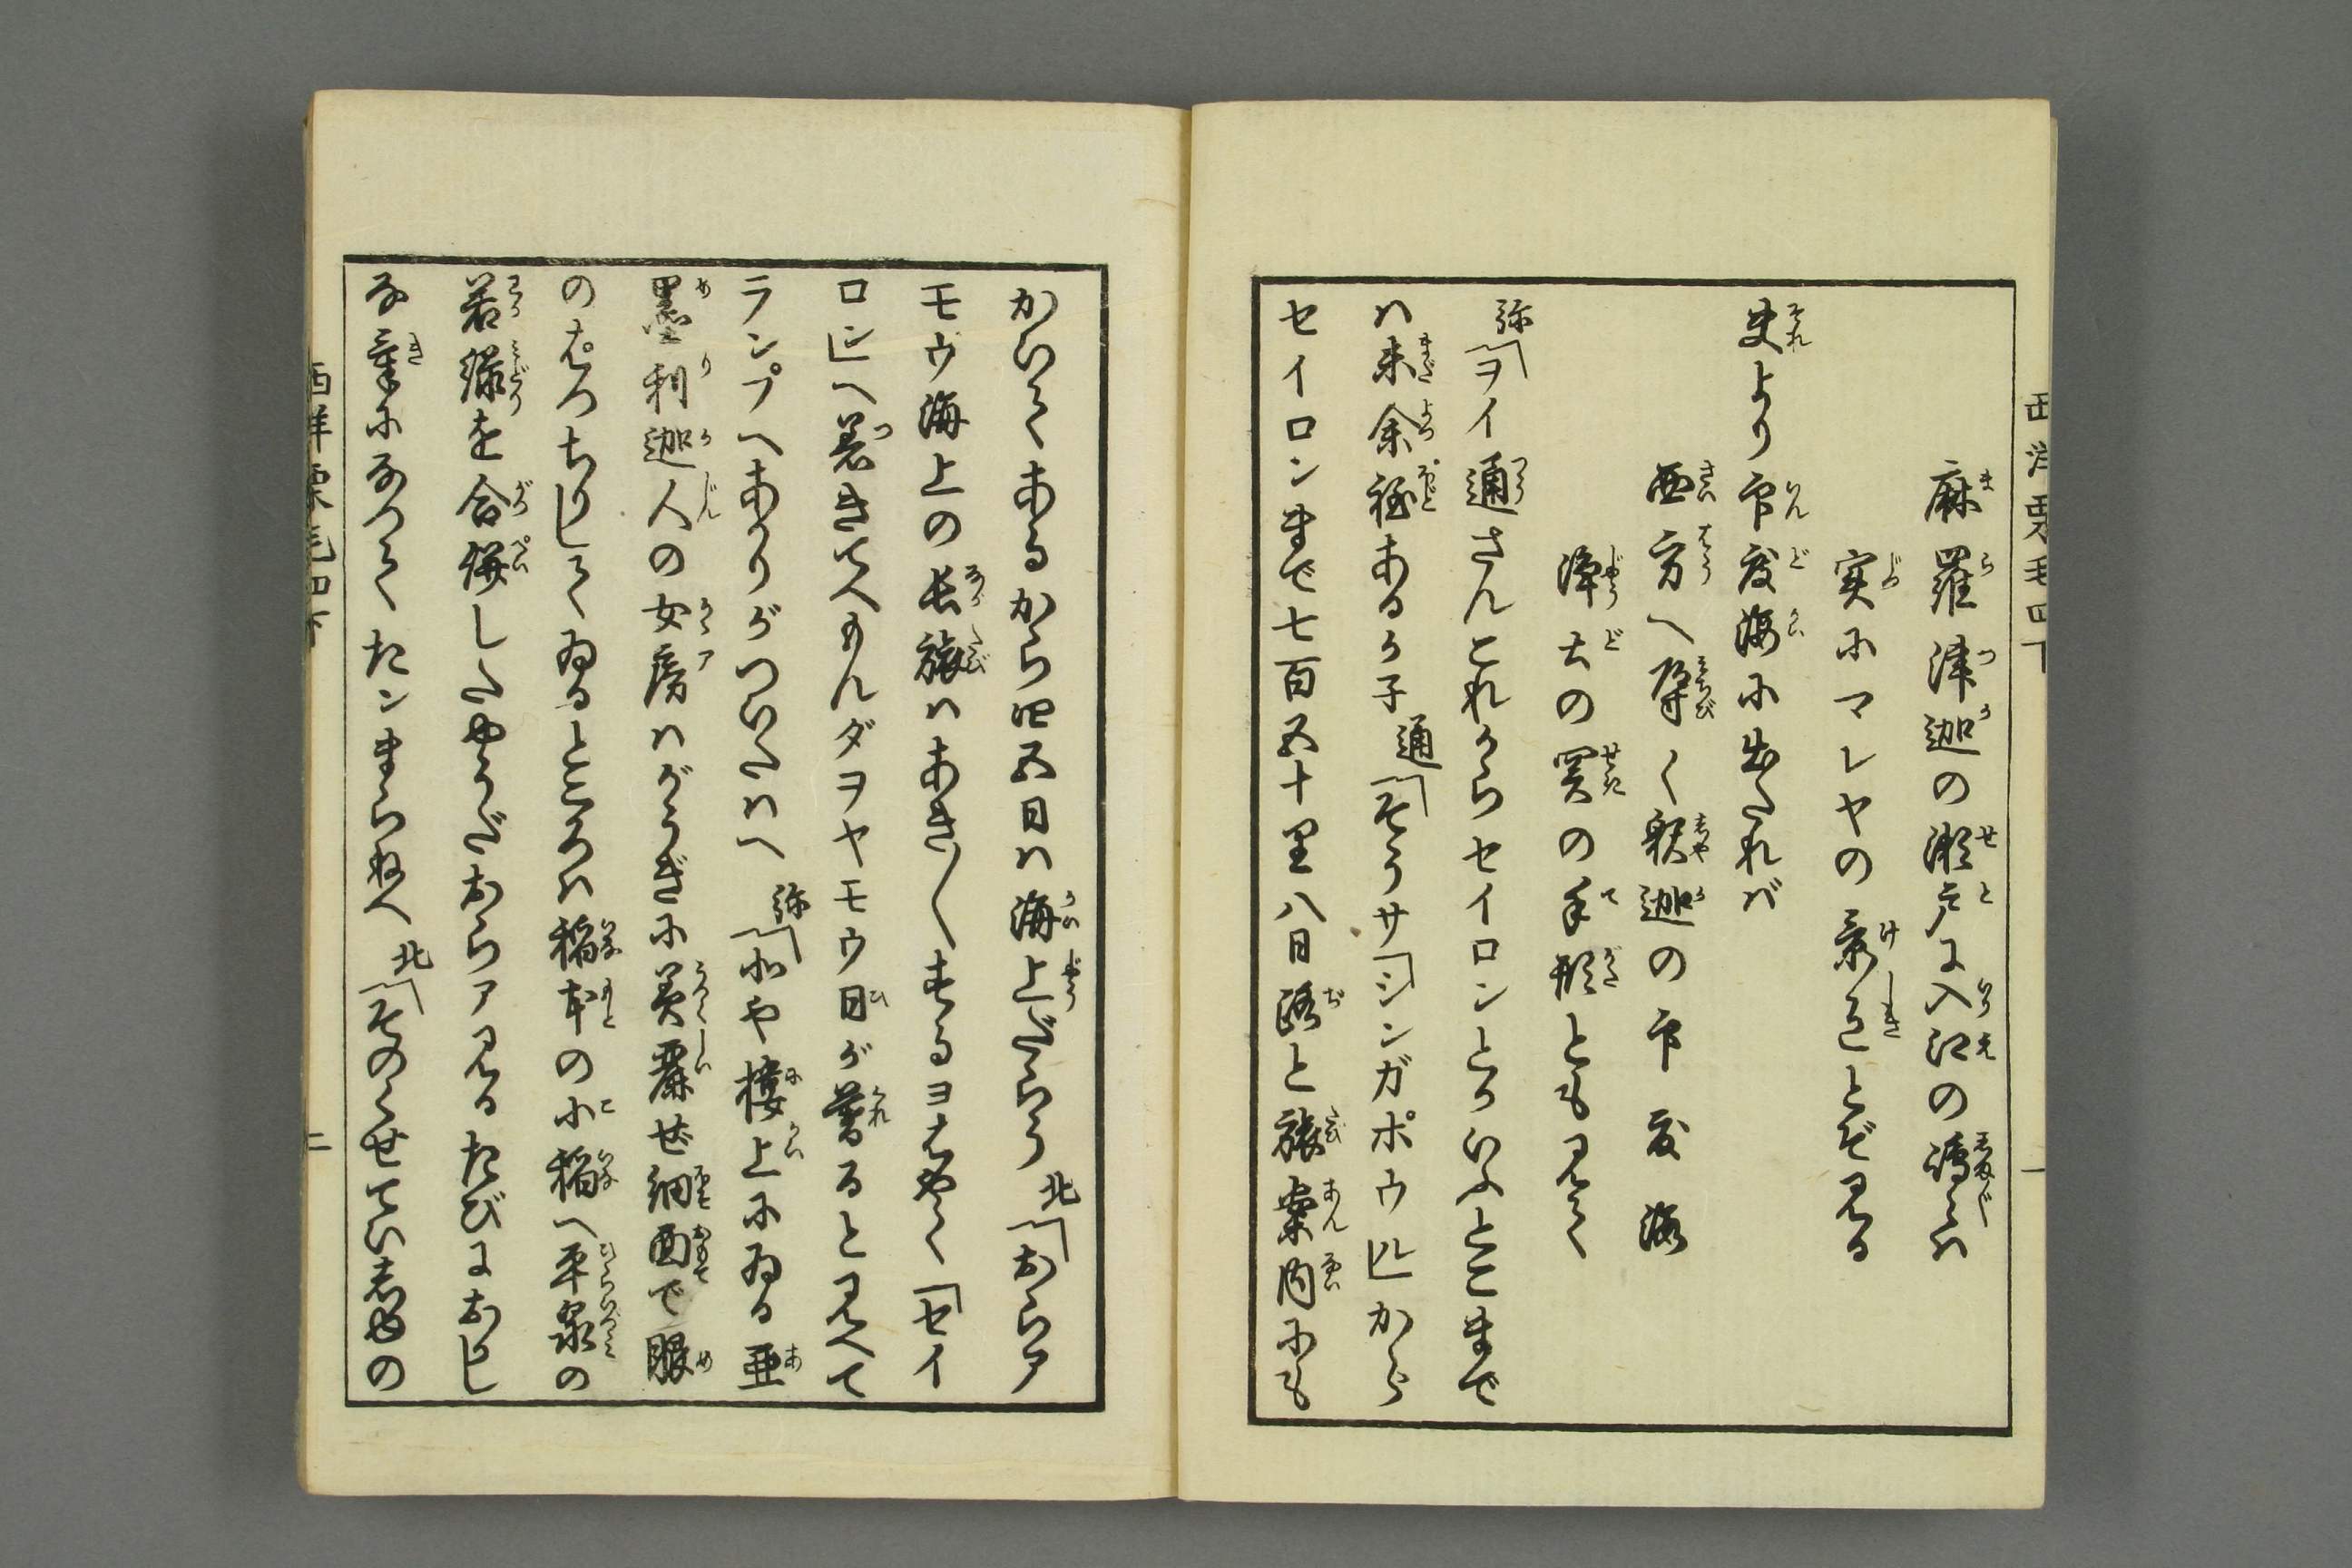 西洋栗毛四下
一
麻羅津迦の瀬戸に入江の潯ハ
実にマレヤの景色とぞ見る
夫より印度海に出たれバ
西方へ導く釈迦の印度海
浄土の関の手形とも見て
弥「ヲイ通さんこれからセイロンとかいふとこまで
ハ未余程あるか子 通「そうサ「シンガポウル」から
セイロンまで七百五十里八日路と旅案内にも
かいてあるから四五日ハ海上だらう 北「おらア
モウ海上の長旅ハあき／＼するヨはやく「セイ
ロン」へ着きてへもんダヲヤモウ日が暮ると見へて
ランプへあかりがついたハへ 弥「ホや楼上にゐる亜
墨利迦人の女房ハがうぎに美麗ぜ細面で眼
のぱつちりしてゐるところハ稲本の小稲へ平泉の
若緑を合併したやうだおらア見るたびにおかし
な気になつてたンまらねへ 北「そのくせてい志ゆの
西洋栗毛四下
二